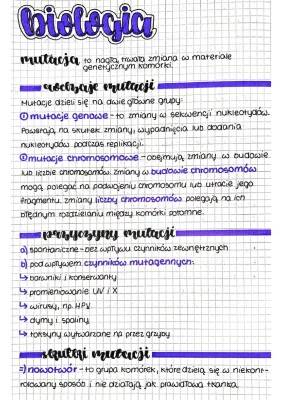 biologia
mutacja to nagła, trwała zmiana w materiale
genetycznym komórki.
rodzaje mutacji
Mutacje dzieli się na dwie główne grupy:
① mutacje genowe - to zmiany w sekwencji nukleotydów.
Powstają na skutek zmiany, wypadnięcia lub dodania
nukleotydów podczas replikacji.
② mutacje chromosomowe - obejmują zmiany w budowie
lub liczbie chromosomów. Zmiany w budowie chromosomów
mogą polegać na podwojeniu chromosomu lub utracie jego
fragmentu. Zmiany liczby chromosomów polegają na ich
błędnym rozdzielaniu między komórki potomne.
przyczyny mutacji
a) spontaniczne - bez wpływu czynników zewnętrznych
b) pod wpływem czynników mutagennych:
↳ barwniki i konserwanty
↳ promieniowanie UV i X
↳ wirusy, np. HPV
↳ dymy i spaliny
↳ toksyny wytwarzane na przez grzyby
skutki mutacji
⇒ nowotwór - to grupa komórek, które dzielą się w niekont-
rolowany sposób i nie działają jak prawidłowa tkanka.